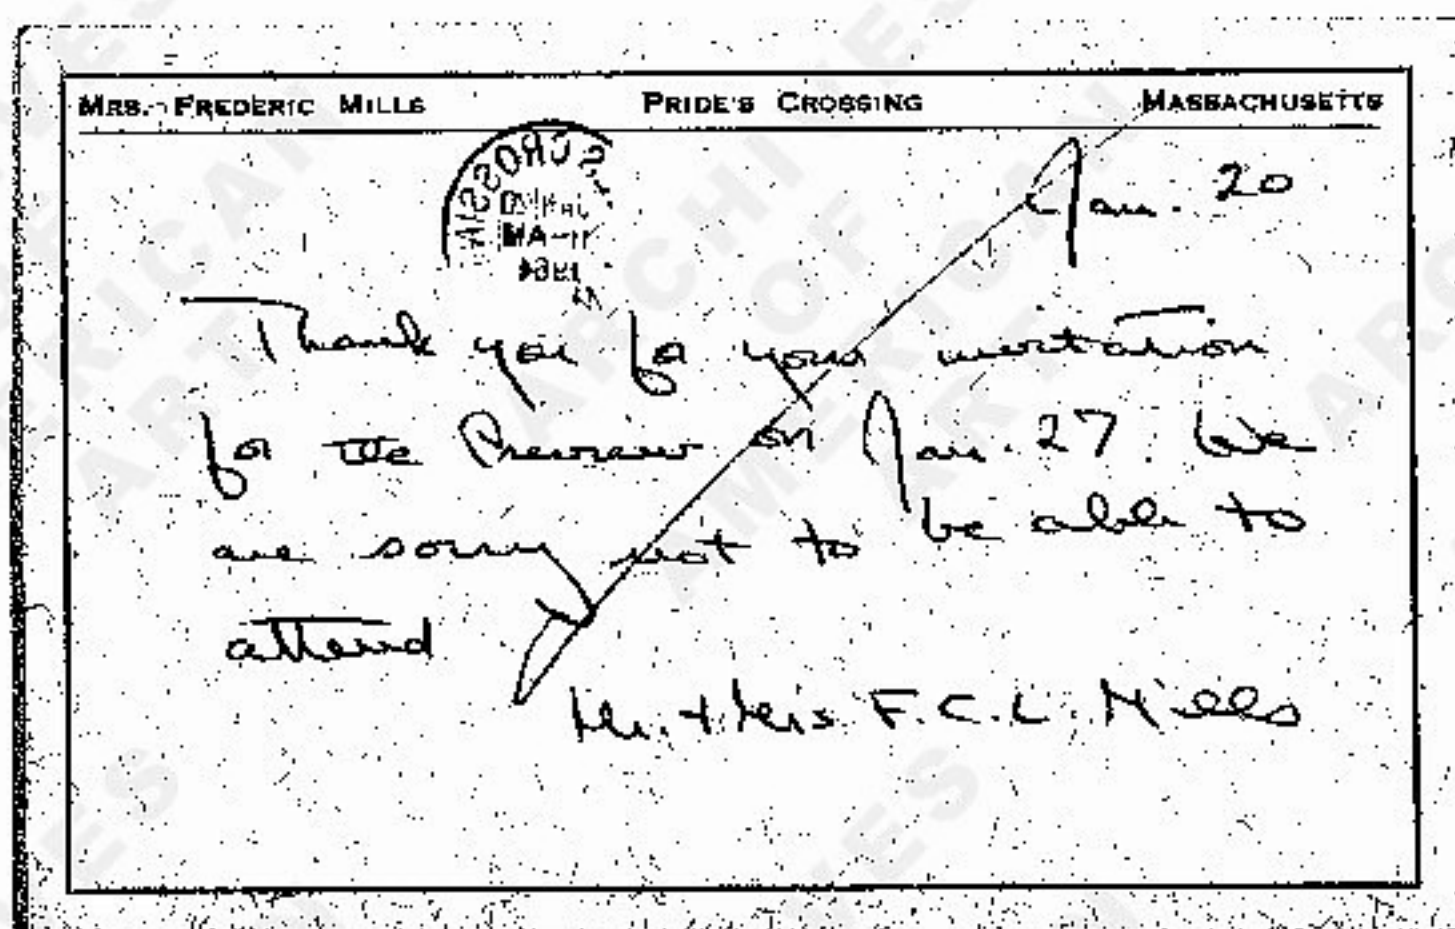 MRS. FREDERIC MILLS PRIDE'S CROSSING MASSACHUSETTS
Jan. 20
Thank you for your invitation
for the Preview on Jan. 27. We
are sorry not to be able to
attend
Mr. + Mrs. F.C.L. Mills
ARCHIVES
OF
AMERICAN
ART